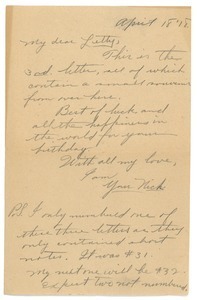 April 18 '18
My dear Letty,
This is the
3rd letter, all of which
contain a small souvenir
from over here.
Best of luck and
all the happiness in
the world for your
birthday.
With all my love,
I am
Your Dick
P.S. I only numbered one of
these three letters as they
only contained about
notes. It was #31.
My next one will be #32.
Expect two not numbered.